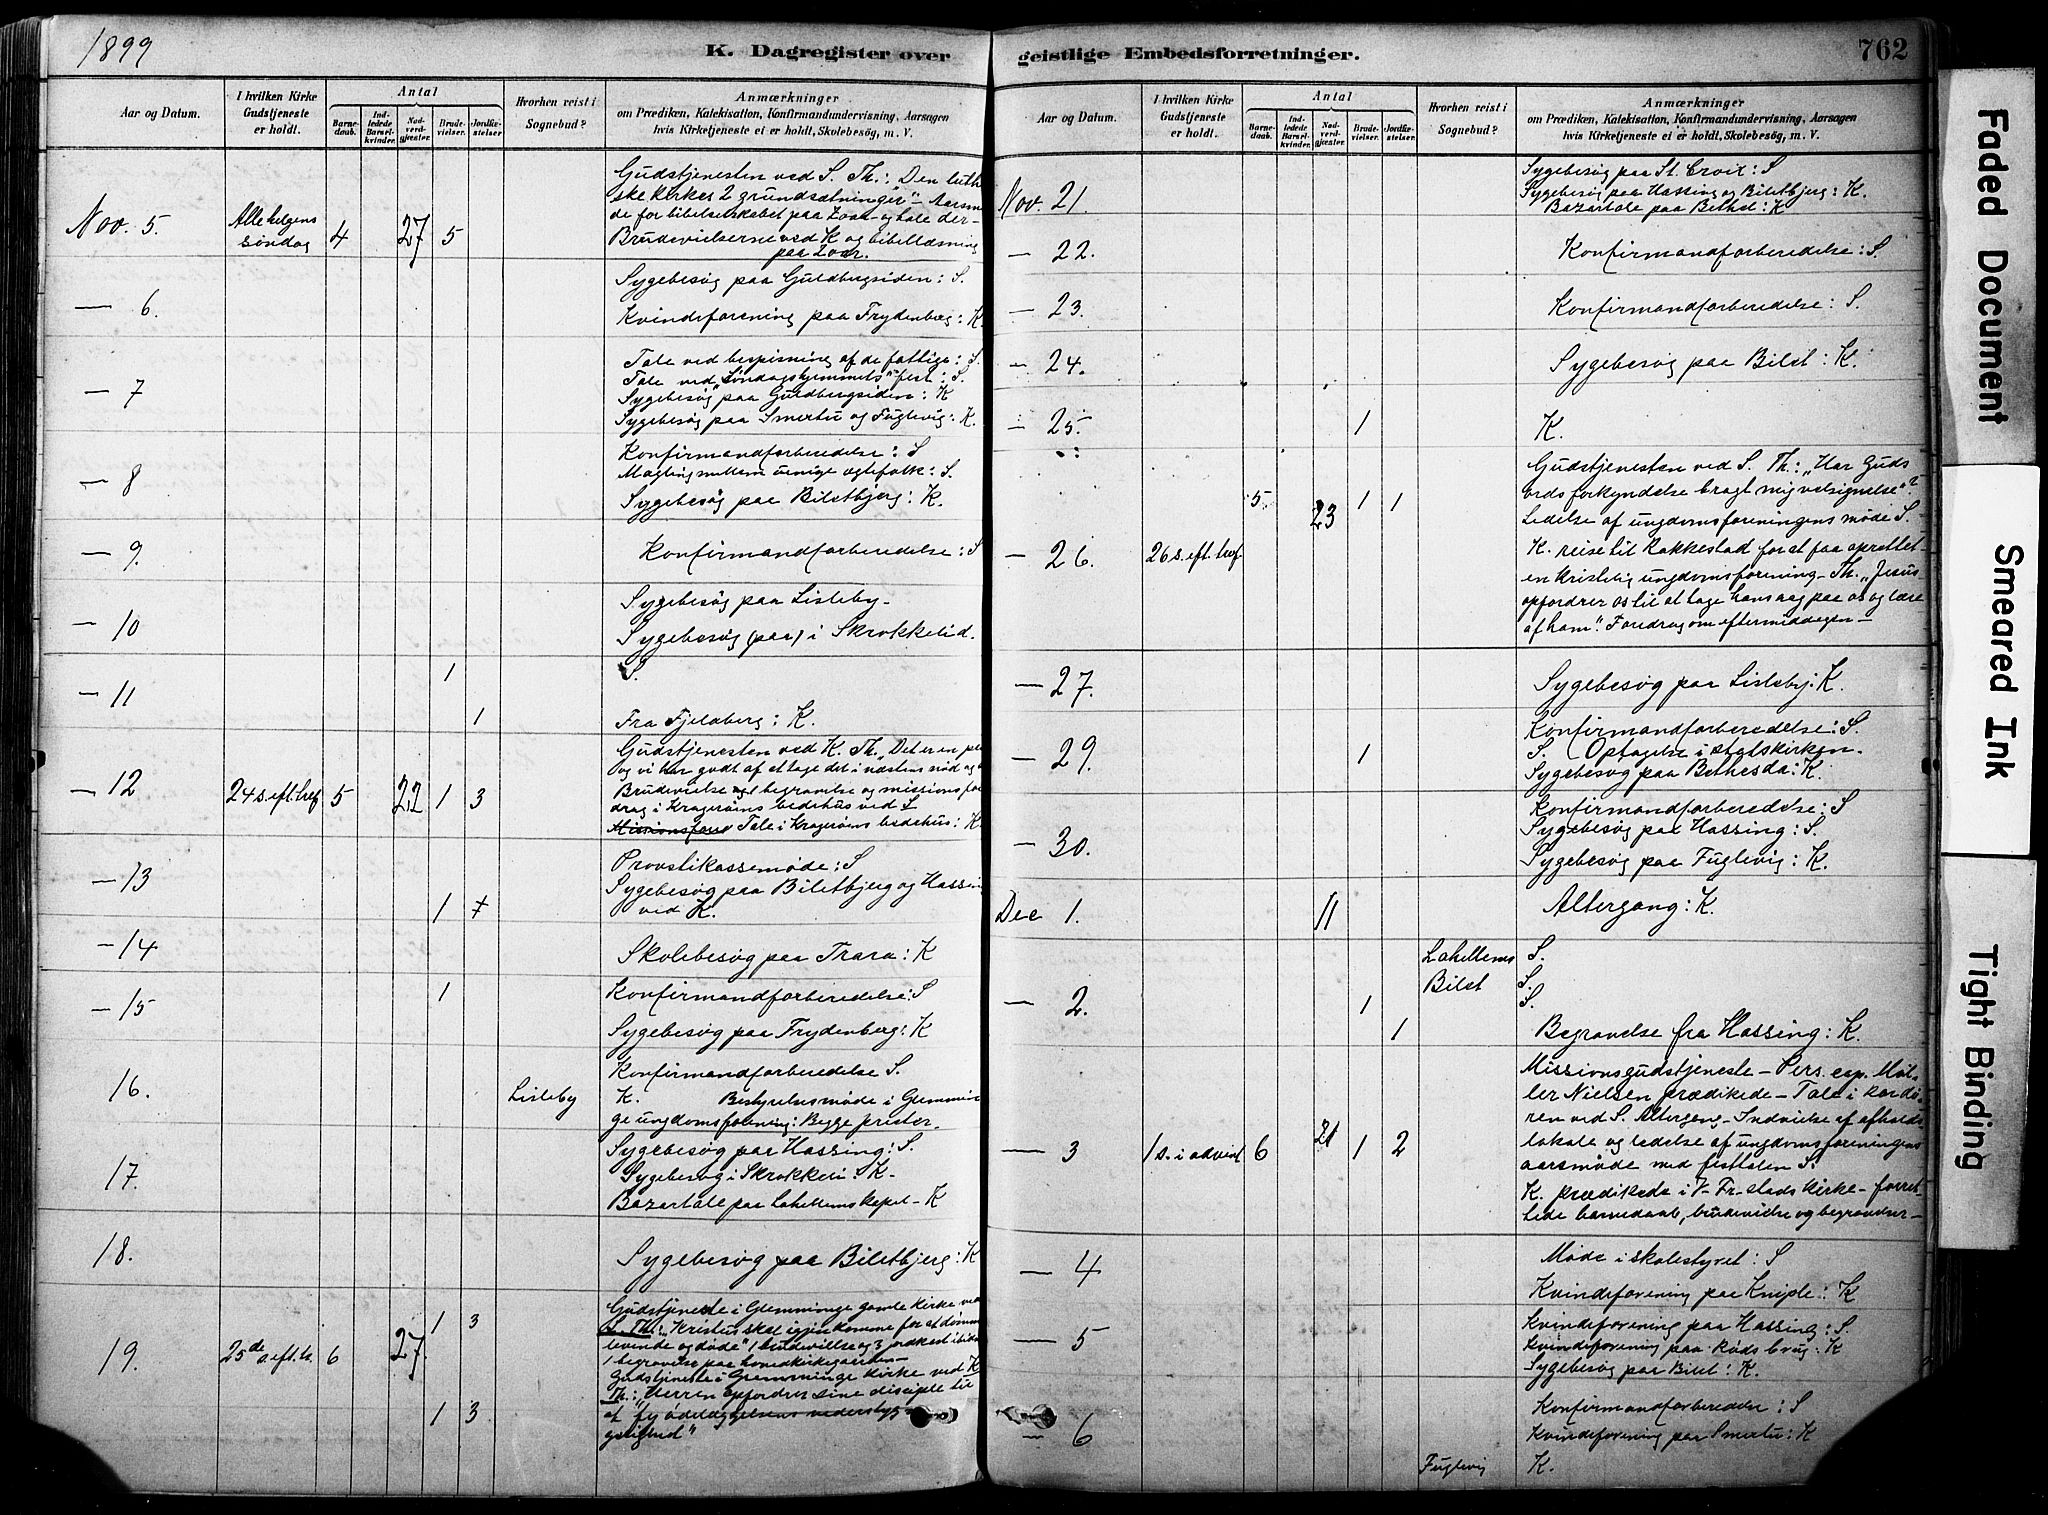 1899
K. Dagregister over
Aar og Datum.
I hvilken Kirke Gudstjeneste er holdt.
Antal
Barnedaab.
Indledede Barselkvinder.
Nadverdgjæster.
Brudevielser.
Jordfæstelser.
Hvorhen reist i Sognebud?
Anmærkninger
om Prædiken, Katekisation, Konfirmandundervisning, Aarsagen
hvis Kirketjeneste ei er holdt, Skolebesøg, m. V.
Nov. 5. Allehelgens søndag 4 27 5
Gudstjenesten ved S. Th.: „Den luth
ske kirkes 2 grundsætninger" - Aarsmø
de for bibelselskabet paa Zoar - og tale der -
Brudevielserne ved K og bibellæsning
paa Zoar.
— 6.
Sygebesøg paa Guldbergsiden: S.
Kvindeforening paa Frydenberg: K.
— 7
Tale ved bespisning af de fattige: S
Tale ved „Søndagshjemmets" fest: S.
Sygebesøg paa Guldbergsiden: K
Sygebesøg paa Smertu og Fuglevig: K.
— 8
Konfirmandforberedelse: S
Mægling mellem uenige ægtefolk: S.
Sygebesøg paa Biletbjerg: K.
— 9.
Konfirmandforberedelse: S
— 10
Sygebesøg paa Lisleby -
Sygebesøg (paa) i Skrokkelid.
— 11
1 S.
1 Fra Fjeldberg: K.
— 12 24 s. eft. tref 5 22 1 3
Gudstjenesten ved K. Th. „Det er en
og vi har godt af at tage det i næstens nød og
Brudevielse og 1 begravelse og missionsfor
drag i Kragerøens bedehus ved S
Missionsfore Tale i Kragerøens bedehus: K.
— 13 1
Provstikassemøde: S
Sygebesøg paa Biletbjerg og Hassin
ved K.
— 14
Skolebesøg paa Trara: K
— 15 1
Konfirmandforberedelse: S
Sygebesøg paa Frydenberg: K
16. Lisleby
Konfirmandforberedelse S.
K. Bestyrelsesmøde i Glemmin
ge ungdomsforening: Begge prester.
17.
Sygebesøg paa Hassing: S.
Sygebesøg i Skrokken: K.
Bazartale paa Lahellems kapel - K
18.
Sygebesøg paa Biletbjerg: K
19. 25de s. eft. tr. 6 27. 1 3
Gudstjeneste i Glemminge gamle kirke ved
S. Th.: „Kristus skal igjen komme for at dømme
levende og døde" 1 brudevielse og 3 jordkast
1 begravelse paa hovedkirkegaarden -
Gudstjeneste i Glemminge kirke ved K
Th.: „Herren opfordrer sine disciple til
1 3 at fly ødelæggelsens vederstyg
gelighed"
geistlige Embedsforretninger.
762
Aar og Datum.
I hvilken Kirke Gudstjeneste er holdt.
Antal
Barnedaab.
Indledede Barselkvinder.
Nadverdgjæster.
Brudevielser.
Jordfæstelser.
Hvorhen reist i Sognebud?
Anmærkninger
om Prædiken, Katekisation, Konfirmandundervisning, Aarsagen
hvis Kirketjeneste ei er holdt, Skolebesøg, m. V.
Nov. 21.
Sygebesøg paa St. Croix: S
Sygebesøg paa Hassing og Biletbjerg: K.
Bazartale paa Bethel: K
— 22.
Konfirmandforberedelse: S.
— 23.
Konfirmandforberedelse: S.
— 24.
Sygebesøg paa Bilet: K.
— 25. 1 K.
— 26. 26 s. eft. tref. 5 23 1 1
Gudstjenesten ved S. Th.: „Har Guds
ords forkyndelse bragt mig velsignelse"?
Ledelse af ungdomsforeningens møde S. -
K. reise til Rakkestad for at faa oprettet
en kristelig ungdomsforening - Th. „Jesus
opfordrer os til at tage hans aag paa os og lære
af ham". Foredrag om eftermiddagen -
— 27.
Sygebesøg paa Lisleby: K.
— 29. 1
Konfirmandforberedelse: S.
S. Optagelse i statskirken.
Sygebesøg paa Bethesda: K.
— 30.
Konfirmandforberedelse: S
Sygebesøg paa Hassing: S.
Sygebesøg paa Fuglevig: K.
Dec 1. 11
Altergang: K.
— 2.
Lahellems S.
Bilet S.
1 S.
1 Begravelse fra Hassing: K.
— 3 1 s. i advent 6 21 1 2
Missionsgudstjeneste - Pers. cap. Møl-
ler Nielsen prædikede - Tale i kordø-
ren ved S. Altergang - Indvielse af afholds
lokale og ledelse af ungdomsforeningens
aarsmøde med festtalen S.
K. prædikede i V. Fr.stads kirke - forret-
tede barnedaab, brudevielse og begravelser -
— 4
Møde i skolestyret: S
Kvindeforening paa Kniple: K
— 5
Kvindeforening paa Hassing: S.
Kvindeforening paa Røds brug: K
Sygebesøg paa Bilet: K.
— 6
Konfirmandforberedelse: S
Kvindeforening paa Smertu: K
Fuglevig K.
Faded Document
Smeared Ink
Tight Binding